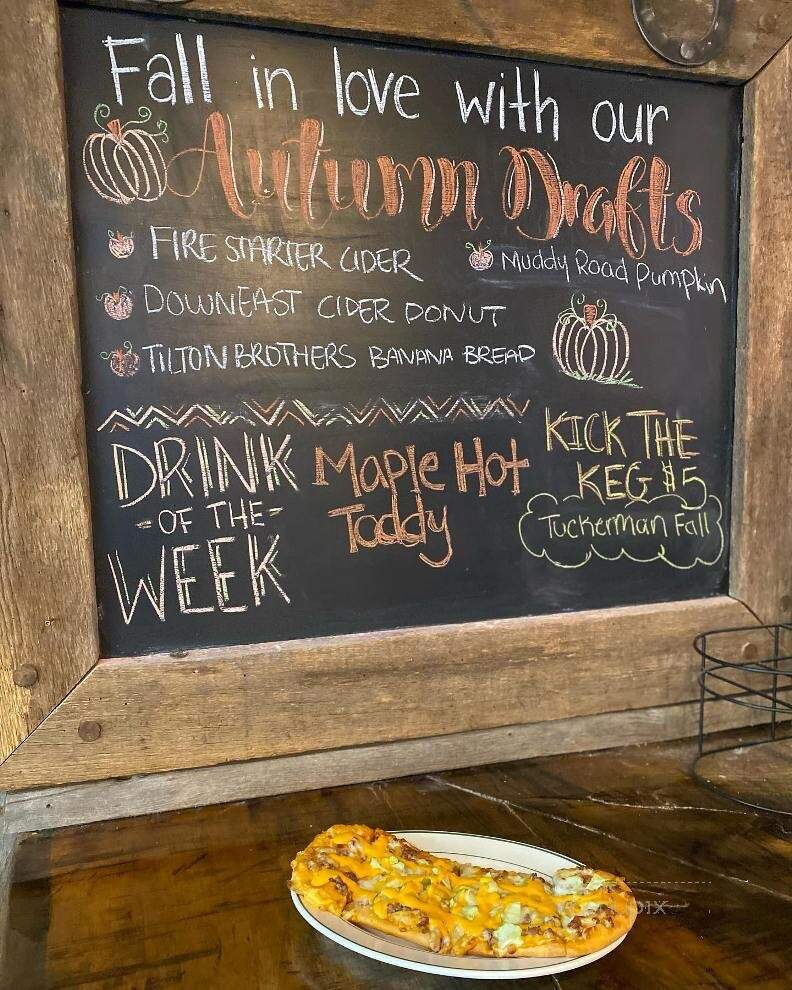 Fall in love with our
Autumn Drafts
FIRE STARTER CIDER
Muddy Road Pumpkin
DOWNEAST CIDER DONUT
TILTON BROTHERS BANANA BREAD
DRINK
-OF THE-
WEEK
Maple Hot
Toddy
KICK THE
KEG $5
Tuckerman Fall